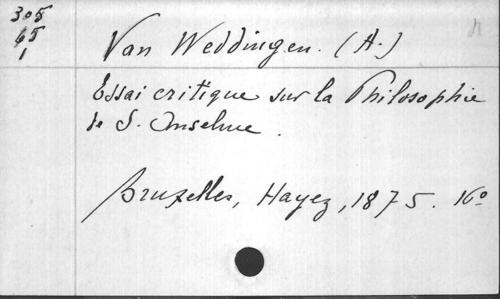 305
65
1
Van Weddingen. (A.)
Essai critique sur la Philosophie
de S. Anselme.
Bruxelles, Hayez, 1875. 16º